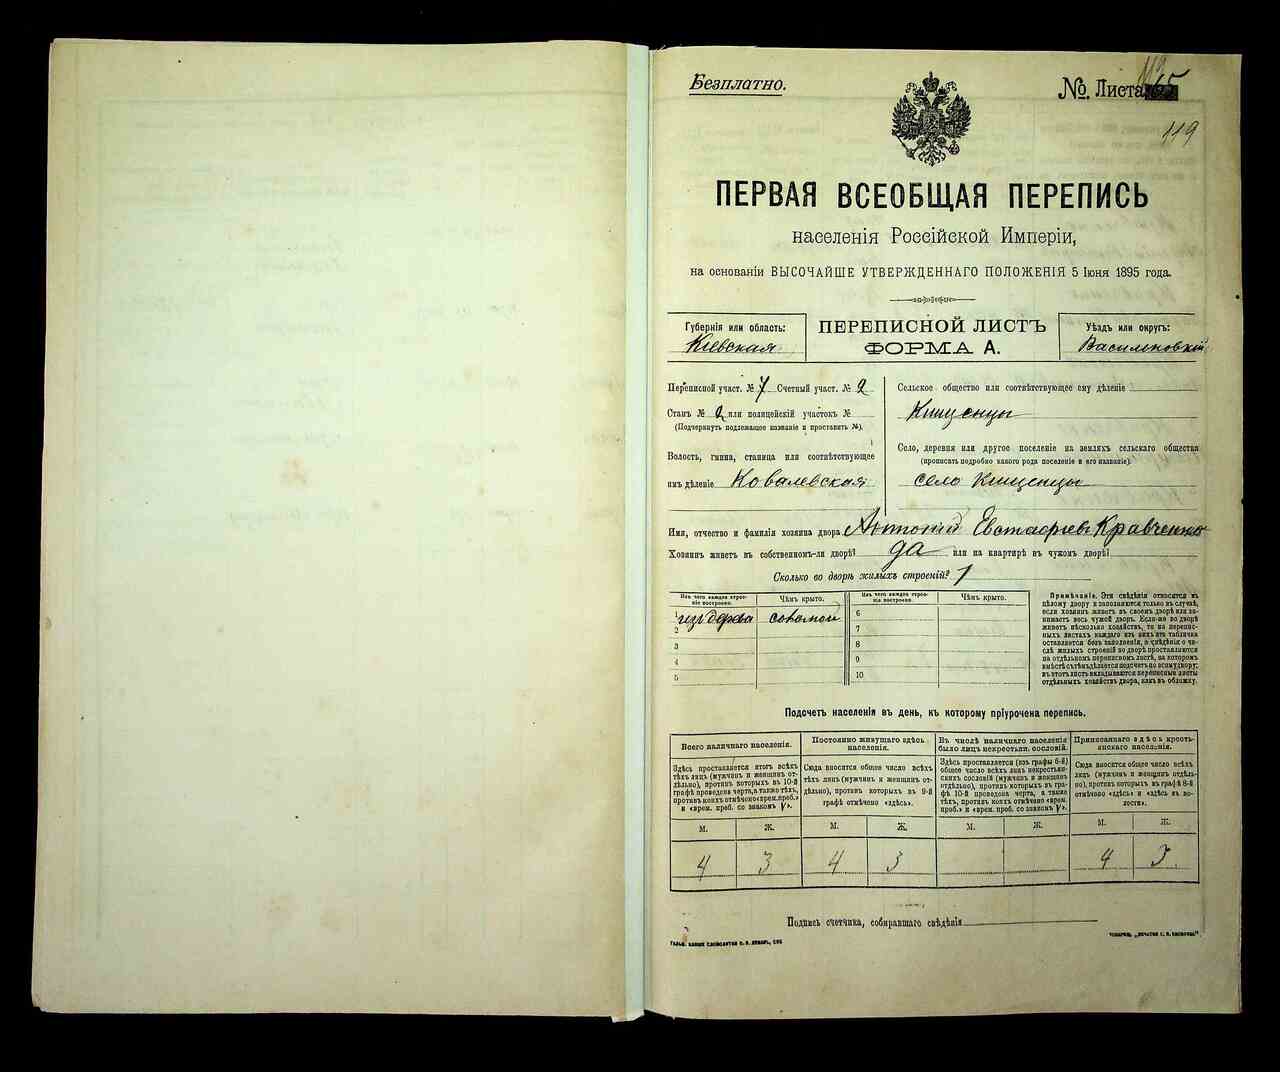 Безплатно.
№ Листа 65
119
ПЕРВАЯ ВСЕОБЩАЯ ПЕРЕПИСЬ
населенія Россійской Имперіи,
на основаніи ВЫСОЧАЙШЕ УТВЕРЖДЕННАГО ПОЛОЖЕНІЯ 5 Іюня 1895 года.
Губернія или область:
Кіевская
ПЕРЕПИСНОЙ ЛИСТЪ
ФОРМА А.
Уѣздъ или округъ:
Васильковскій
Переписной участ. № 7 Счетный участ. № 2
Станъ № 2 или полицейскій участокъ №
(Подчеркнуть подлежащее названіе и проставить №).
Волость, гмина, станица или соотвѣтствующее
имъ дѣленіе Ковалевская
Сельское общество или соотвѣтствующее ему дѣленіе
Кищенцы
Село, деревня или другое поселеніе на земляхъ сельскаго общества
(прописать подробно какого рода поселеніе и его названіе).
село Кищенцы
Имя, отчество и фамилія хозяина двора Антоній Евстафіевъ Кравченко
Хозяинъ живетъ въ собственномъ-ли дворѣ? да или на квартирѣ въ чужомъ дворѣ?
Сколько во дворѣ жилыхъ строеній? 1
Изъ чего каждое строе-
ніе построено.
Чѣмъ крыто.
1 изъ дерева соломой
2
3
4
5
Изъ чего каждое строе-
ніе построено.
Чѣмъ крыто.
6
7
8
9
10
Примѣчаніе. Эти свѣдѣнія относятся къ
цѣлому двору и заполняются только въ случаѣ,
если хозяинъ живетъ въ своемъ дворѣ или за-
нимаетъ весь чужой дворъ. Если-же во дворѣ
живетъ нѣсколько хозяйствъ, то на перепис-
ныхъ листахъ каждаго изъ нихъ эта табличка
оставляется безъ заполненія, а свѣдѣнія о чи-
слѣ жилыхъ строеній во дворѣ проставляются
на отдѣльномъ переписномъ листѣ, на которомъ
вмѣстѣ съ тѣмъ дѣлается подсчетъ по всему двору;
въ этотъ листъ вкладываются переписные листы
отдѣльныхъ хозяйствъ двора, какъ въ обложку.
Подсчетъ населенія въ день, къ которому пріурочена перепись.
Всего наличнаго населенія.
Здѣсь проставляется итогъ всѣхъ
тѣхъ лицъ (мужчинъ и женщинъ от-
дѣльно), противъ которыхъ въ 10-й
графѣ проведена черта, а также тѣхъ,
противъ коихъ отмѣчено «врем. преб.»
и «врем. преб. со знакомъ V».
м. ж.
4 3
Постоянно живущаго здѣсь
населенія.
Сюда вносится общее число всѣхъ
тѣхъ лицъ (мужчинъ и женщинъ от-
дѣльно), противъ которыхъ въ 9-й
графѣ отмѣчено «здѣсь».
м. ж.
4 3
Въ числѣ наличнаго населенія
было лицъ некрестьян. сословій.
Здѣсь проставляется (изъ графы 6-й)
общее число всѣхъ лицъ некрестьян-
скихъ сословій (мужчинъ и женщинъ
отдѣльно), противъ которыхъ въ гра-
фѣ 10-й проведена черта, а также
тѣхъ, противъ коихъ отмѣчено «врем.
преб.» и «врем. преб. со знакомъ V».
м. ж.
Приписаннаго здѣсь кресть-
янскаго населенія.
Сюда вносится общее число всѣхъ
лицъ (мужчинъ и женщинъ отдѣль-
но), противъ которыхъ въ графѣ 8-й
отмѣчено «здѣсь» и «здѣсь въ во-
лости».
м. ж.
4 3
Подпись счетчика, собиравшаго свѣдѣнія